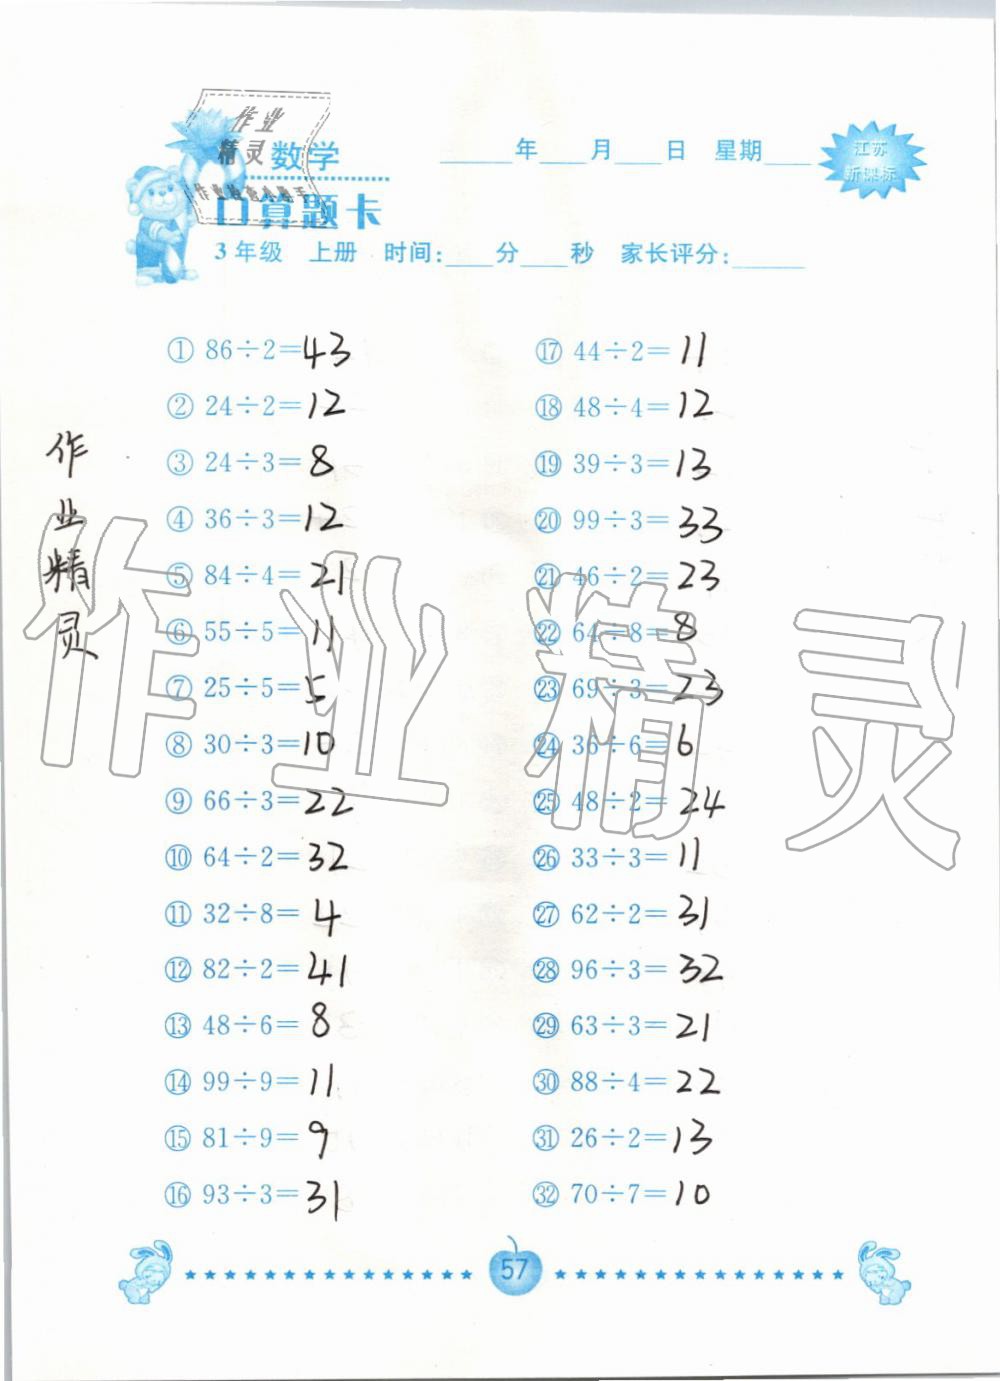 作业
精灵
数学
作业检查小帮手
口算题卡
____年____月____日 星期____
江苏
新课标
3年级 上册 时间:____分____秒 家长评分:____
① 86÷2=43
② 24÷2=12
③ 24÷3=8
④ 36÷3=12
⑤ 84÷4=21
⑥ 55÷5=11
⑦ 25÷5=5
⑧ 30÷3=10
⑨ 66÷3=22
⑩ 64÷2=32
⑪ 32÷8=4
⑫ 82÷2=41
⑬ 48÷6=8
⑭ 99÷9=11
⑮ 81÷9=9
⑯ 93÷3=31
⑰ 44÷2=11
⑱ 48÷4=12
⑲ 39÷3=13
⑳ 99÷3=33
㉑ 46÷2=23
㉒ 64÷8=8
㉓ 69÷3=23
㉔ 36÷6=6
㉕ 48÷2=24
㉖ 33÷3=11
㉗ 62÷2=31
㉘ 96÷3=32
㉙ 63÷3=21
㉚ 88÷4=22
㉛ 26÷2=13
㉜ 70÷7=10
作业精灵
作业精灵
57